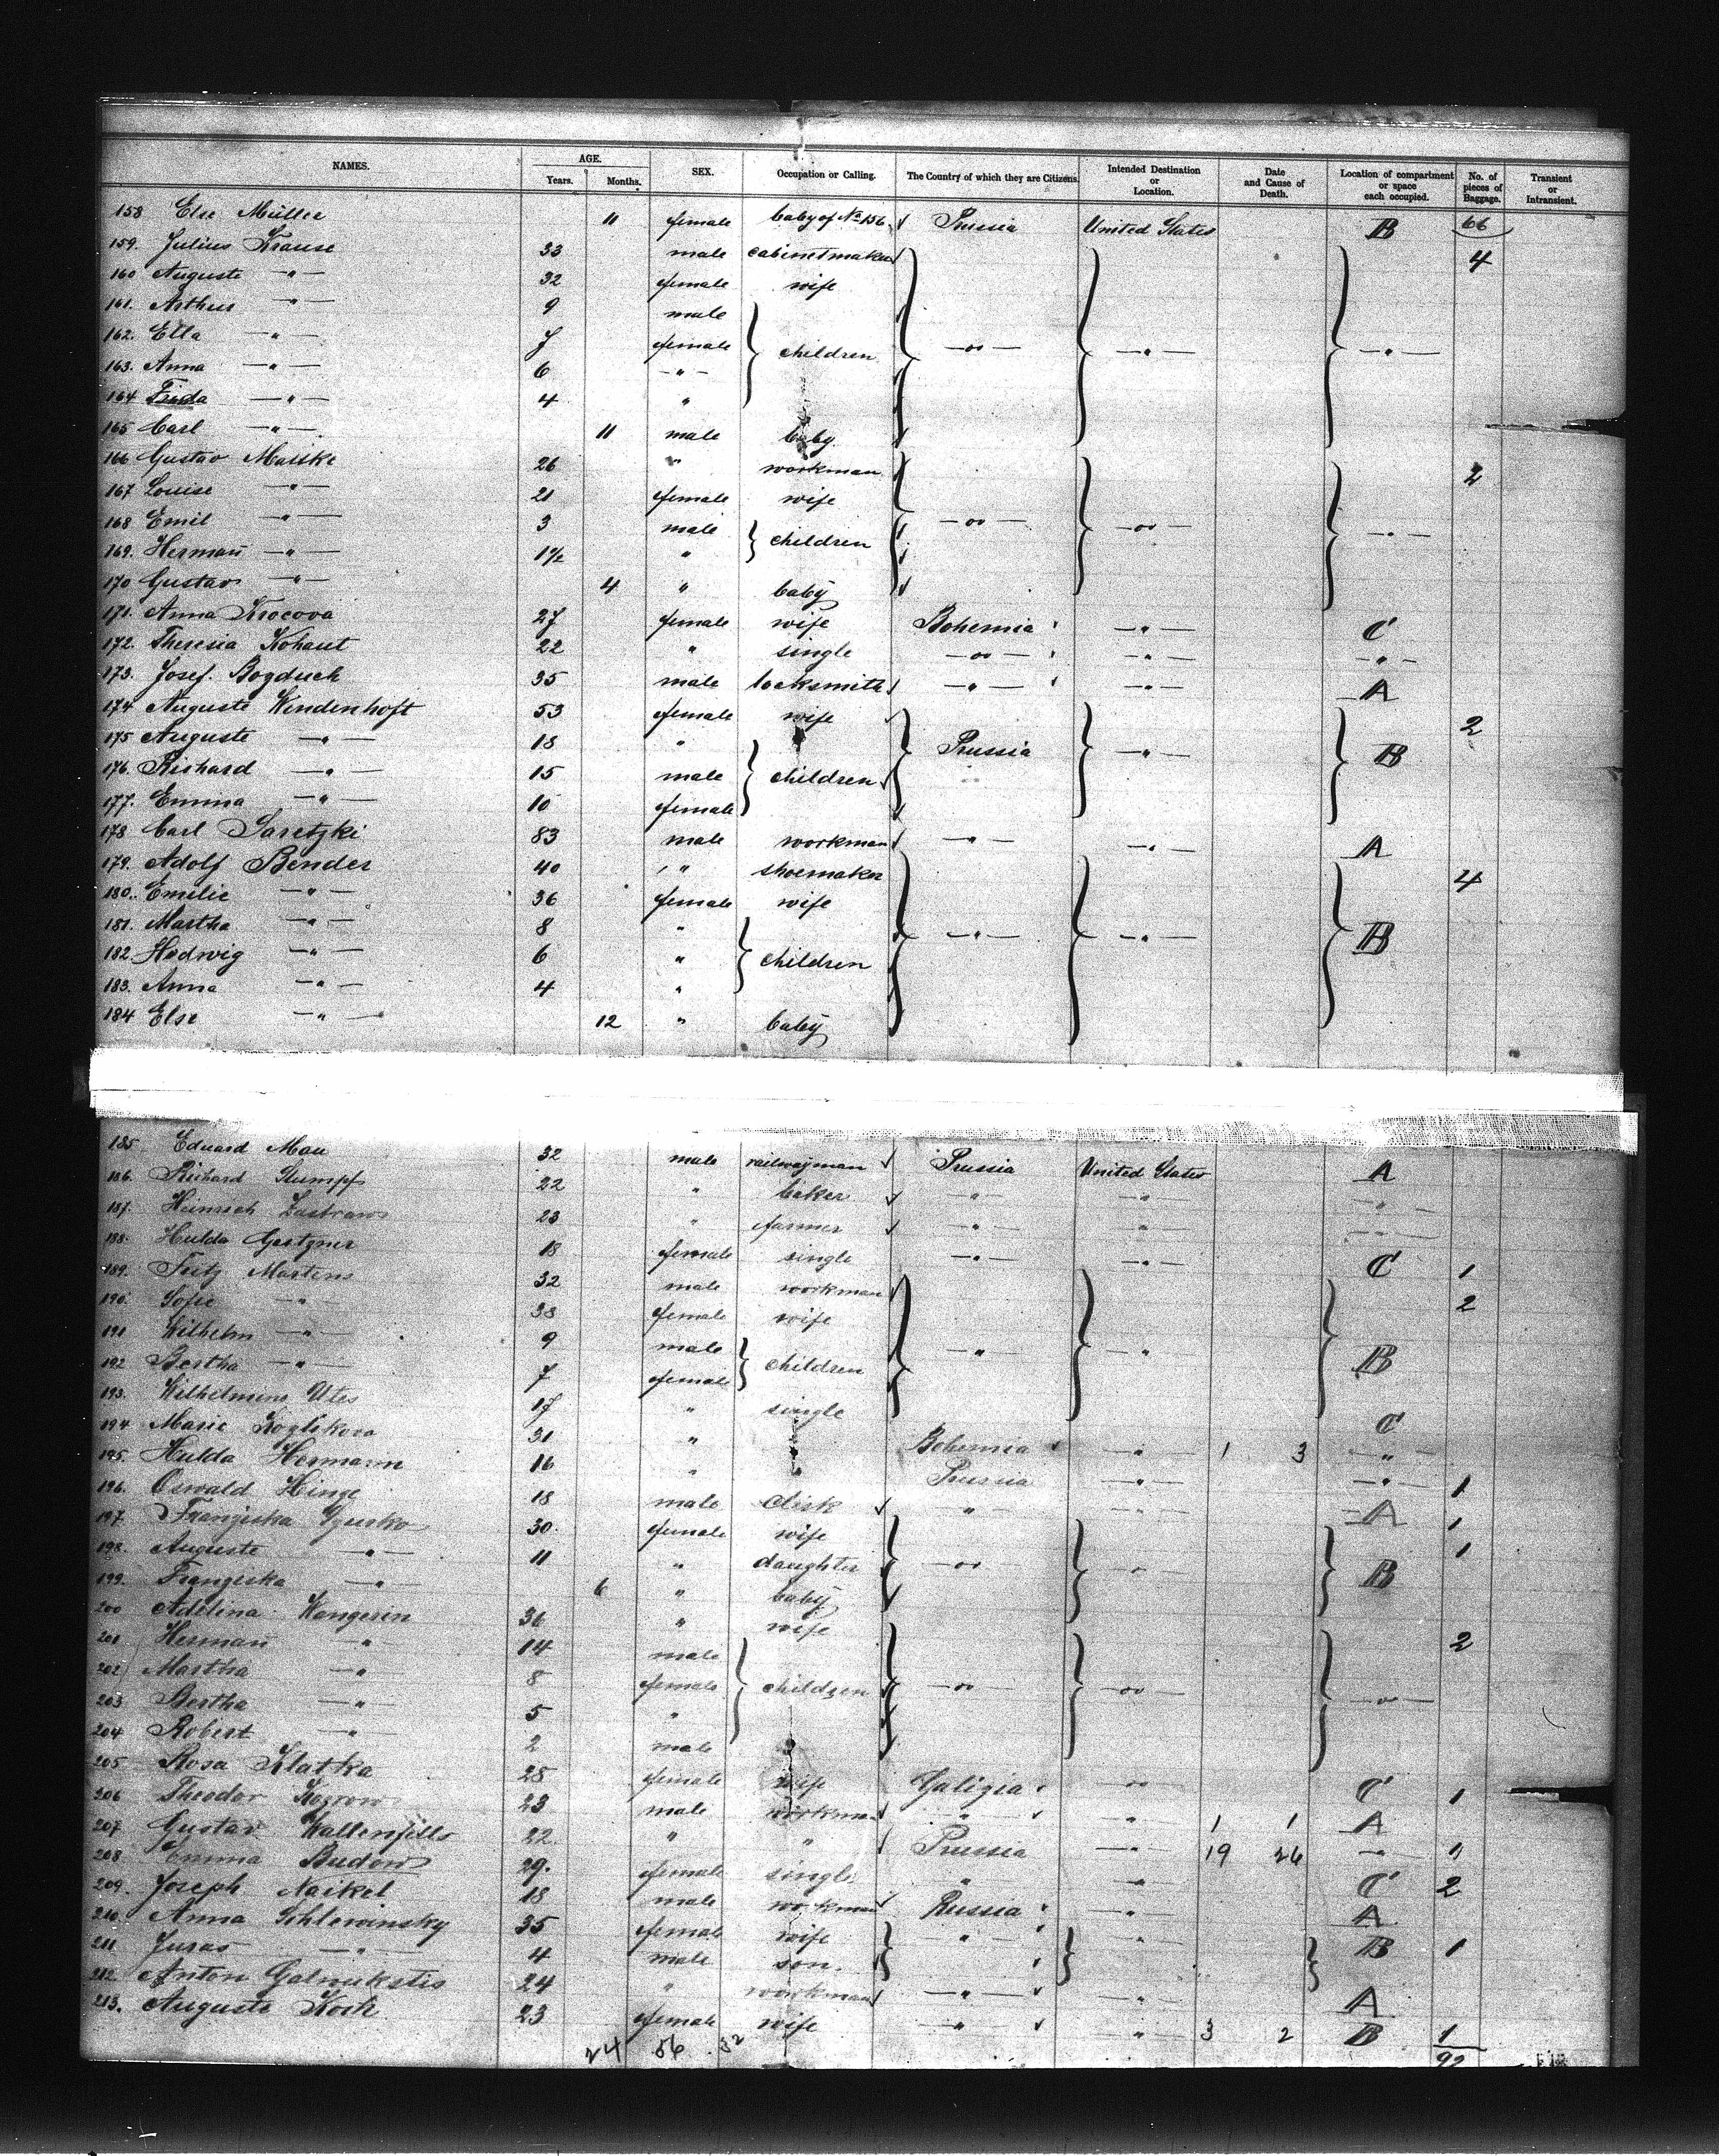 NAMES. AGE. Years. Months. SEX. Occupation or Calling. The Country of which they are Citizens. Intended Destination or Location. Date and Cause of Death. Location of compartment or space each occupied. No. of pieces of Baggage. Transient or Intransient.
158 Else Müller 11 female baby of No 156 Prussia United States B 66
159. Julius Krause 33 male cabinetmaker 4
160 Auguste —"— 32 female wife
161. Arthur —"— 9 male
162. Ella —"— 7 female children —"— —"— —"—
163. Anna —"— 6 —"—
164 Frida —"— 4 "
165 Carl —"— 11 male baby
166 Gustav Masske 26 " workman 2
167 Louise —"— 21 female wife
168 Emil —"— 3 male children —"— —"— —"—
169. Herman̄ —"— 1½ "
170 Gustav —"— 4 " baby
171. Anna Krocova 27 female wife Bohemia —"— C
172. Theresia Kohaut 22 " single —"— —"— —"—
173. Josef. Bogduch 35 male locksmith —"— —"— A
174 Auguste Wendenhoft 53 female wife 2
175 Auguste —"— 18 " Prussia —"— B
176. Richard —"— 15 male children
177. Emma —"— 10 female
178 Carl Saretzki 83 male workman —"— —"— A
179. Adolf Bender 40 " shoemaker 4
180. Emilie —"— 36 female wife
181. Martha —"— 8 " —"— —"— B
182 Hedwig —"— 6 " children
183. Anna —"— 4 "
184 Else —"— 12 " baby
185 Eduard Mau 32 male railwayman Prussia United States A
186. Richard Stumpf 22 " baker —"— —"— —"—
187. Heinrich Zastrow 23 " farmer —"— —"— —"—
188. Hulda Gertzner 18 female single —"— —"— C 1
189. Fritz Martens 32 male workman 2
190. Sofie —"— 38 female wife
191 Wilhelm —"— 9 male children —"— —"— B
192 Bertha —"— 7 female
193. Wilhelmine Utes 17 " single C
194 Marie Koglikova 31 " Bohemia —"— 1 3 —"—
195. Hulda Hermann 16 " Prussia —"— —"— 1
196. Oswald Hinze 18 male Clerk " —"— A 1
197. Franziska 30. female wife 1
198. Auguste —"— 11 " daughter —"— —"— B
199. Franziska —"— 6 " baby
200 Adelina Wangerin 36 " wife 2
201 Herman̄ —"— 14 male
202 Martha —"— 8 female children —"— —"— —"—
203 Bertha —"— 5 "
204 Robert —"— 2 male
205 Rosa Klatka 28 female wife Galizia —"— C 1
206 Theodor 23 male workman —"— " 1 1 A
207 Gustav Wallenfells 22. " " Prussia —"— 19 26 —"— 1
208 Emma Budow 29. female single " —"— C 2
209. Joseph Naikel 18 male workman Russia —"— A
210 Anna Schlewinsky 35 female wife —"— —"— B 1
211 Juras —"— 4 male son.
212 Anton Galwukstis 24 " workman —"— —"— A
213. Auguste Koch 23 female wife —"— " 3 2 B 1
24 56 32 92